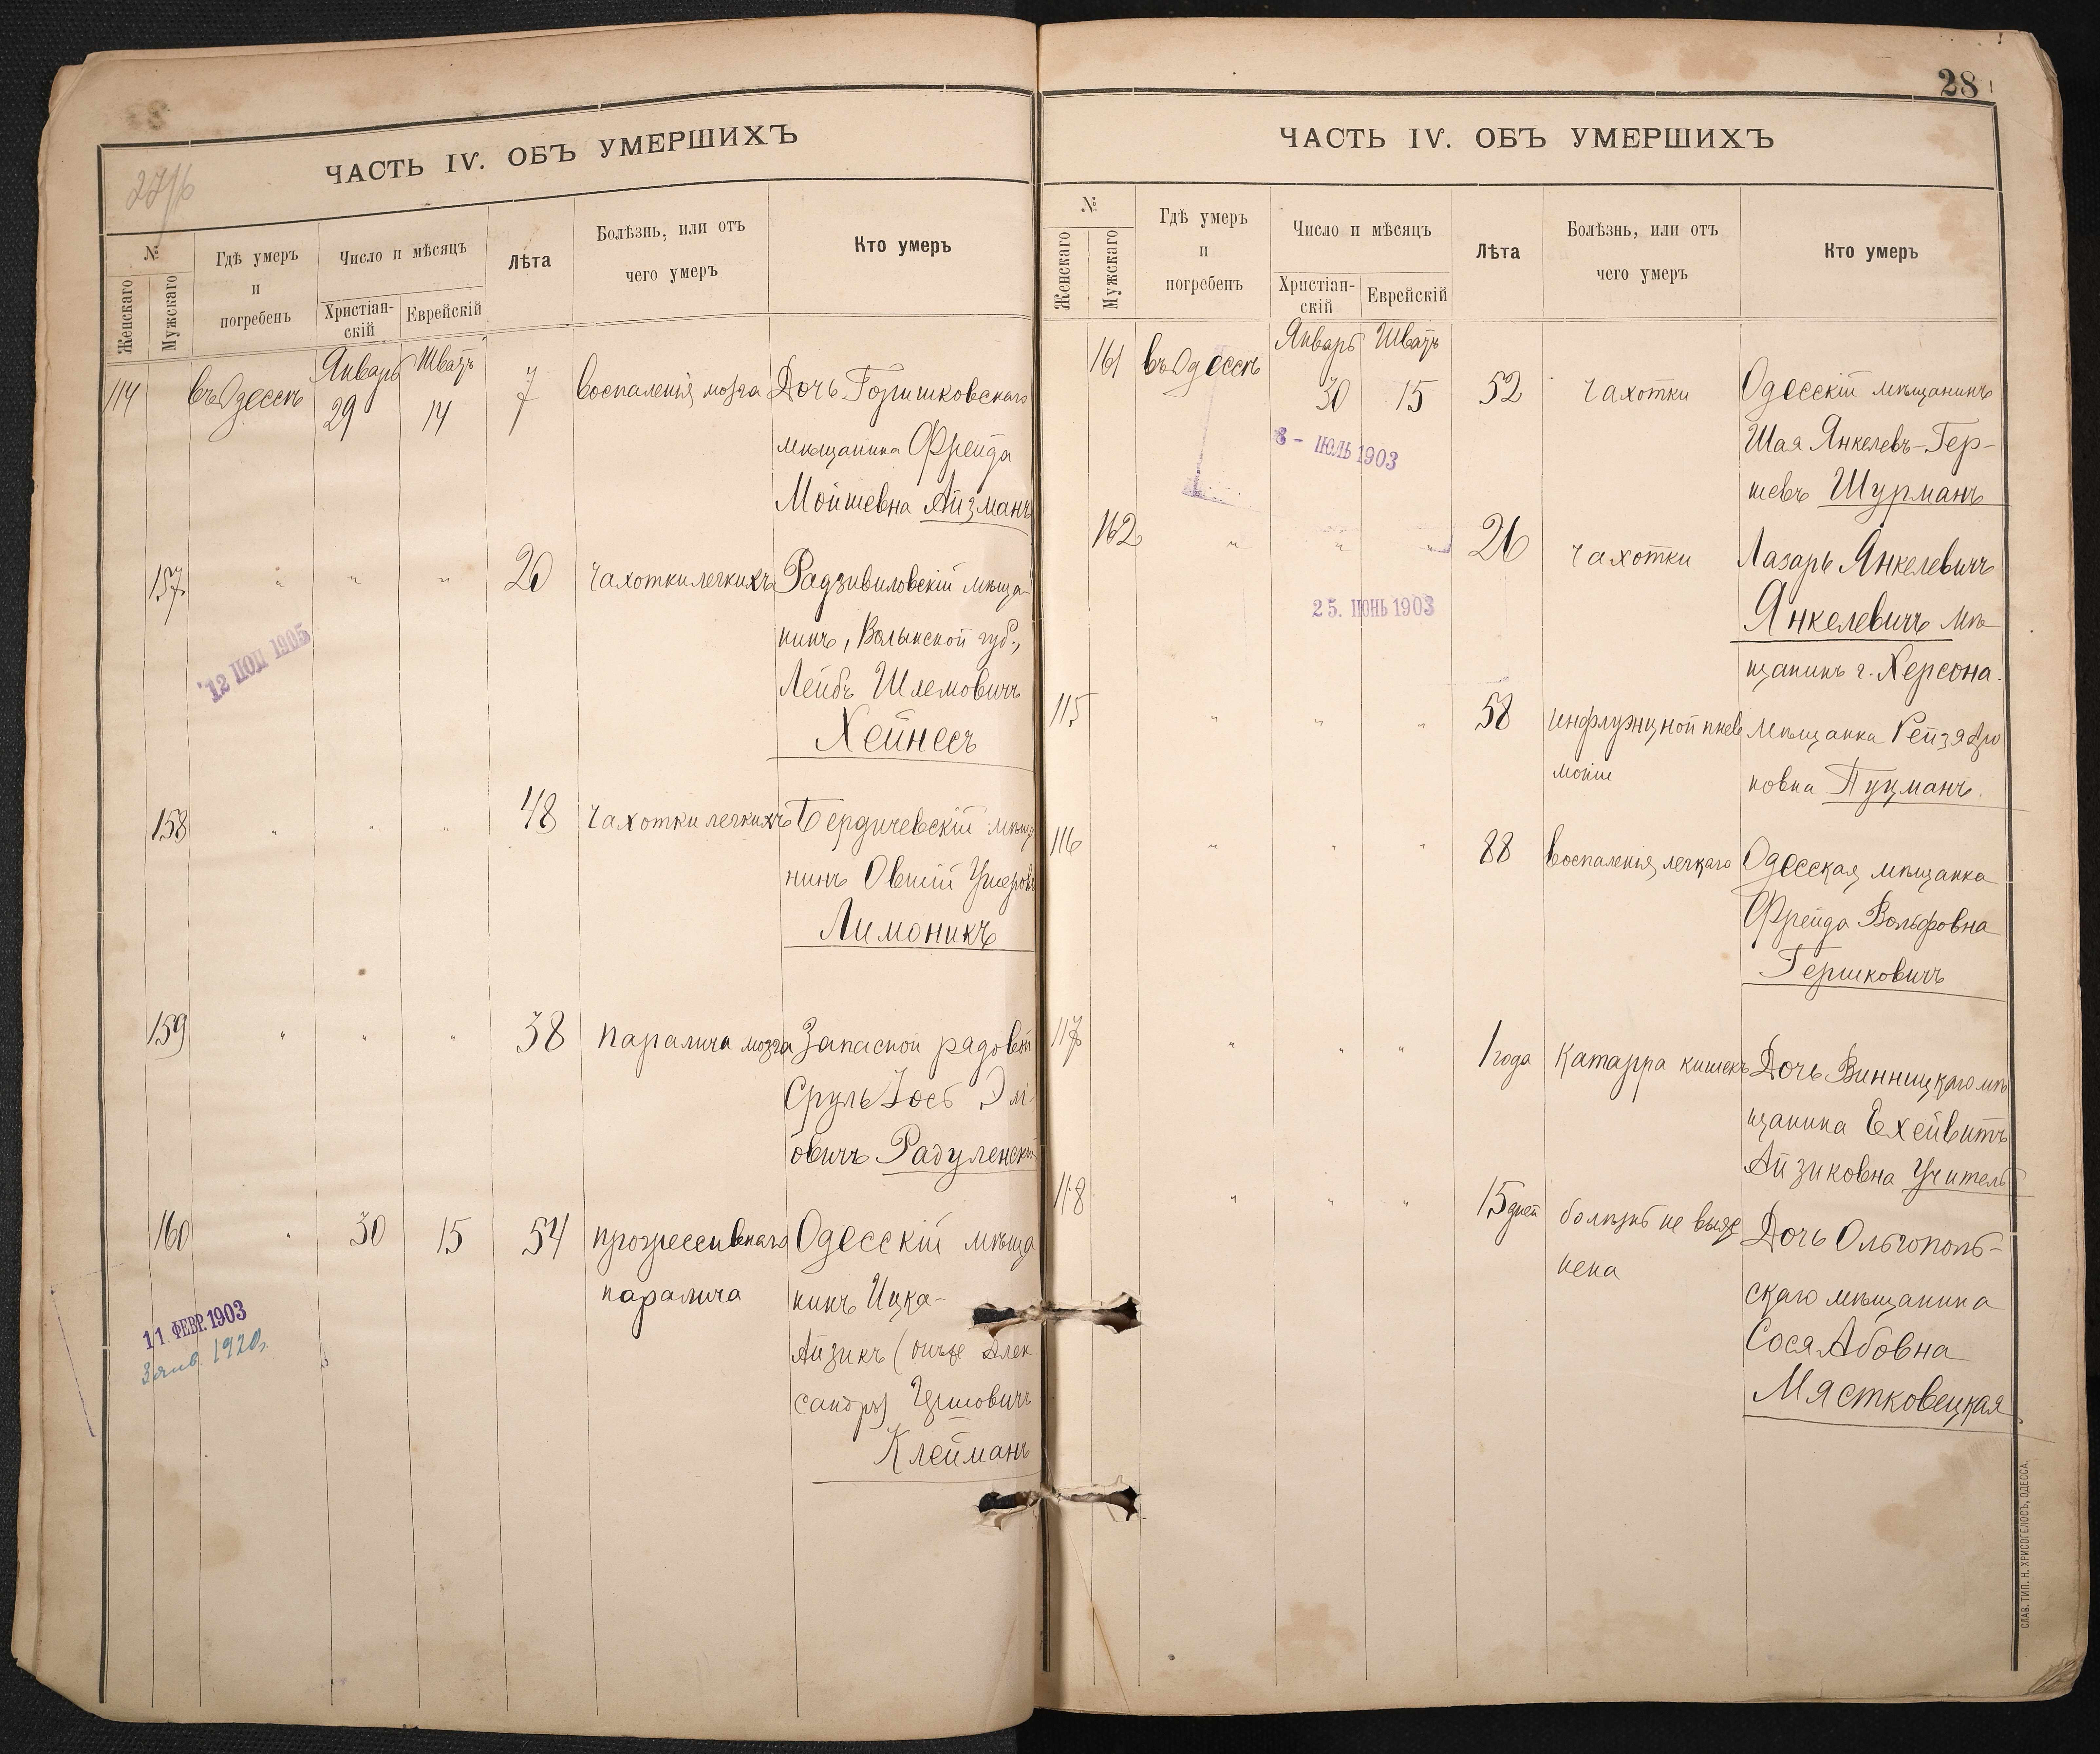 27/б
ЧАСТЬ IV. ОБЪ УМЕРШИХЪ
№
Женскаго
Мужскаго
Гдѣ умеръ
и
погребенъ
Число и мѣсяцъ
Христіан-
скій
Еврейскій
Лѣта
Болѣзнь, или отъ
чего умеръ
Кто умеръ
Январь Шватъ
114 въ Одессѣ 29 14 7 воспаленія мозга Дочь Горишковскаго
мѣщанина Фрейда
Мойшевна Айзманъ
157 " " " 20 чахотки легкихъ Радзивиловскій мѣща-
нинъ, Волынской губ.,
Лейбъ Шлемовичъ
Хейнесъ
12 1905
158 " " " 48 чахотки легкихъ Бердичевскій мѣща
нинъ Овшій
Лимоникъ
159 " " " 38 паралича мозга Запасной рядовой
Сруль Іосъ
овичъ Радуленскій
160 " 30 15 54 прогрессивнаго Одесскій мѣща
паралича нинъ Ицка-
Айзикъ (онъ же Алек
сандръ)
Клейманъ
11. ФЕВР. 1903
3 янв. 1920г.
28
ЧАСТЬ IV. ОБЪ УМЕРШИХЪ
№
Женскаго
Мужскаго
Гдѣ умеръ
и
погребенъ
Число и мѣсяцъ
Христіан-
скій
Еврейскій
Лѣта
Болѣзнь, или отъ
чего умеръ
Кто умеръ
Январь Шватъ
161 въ Одессѣ 30 15 52 чахотки Одесскій мѣщанинъ
Шая Янкелевъ-Гер-
шевъ Шурманъ
8 - ІЮЛЬ 1903
162 " " " 26 чахотки Лазарь Янкелевичъ
Янкелевичъ мѣ
щанинъ г. Херсона.
25. ІЮНЬ 1903
115 " " " 58 инфлуэнцной пнев Мѣщанка Рейзя
моніи новна Пуцманъ.
116 " " " 88 воспаленія легкаго Одесская мѣщанка
Фрейда Вольфовна
Гершковичъ
117 " " " 1 года Катарра кишекъ Дочь Винницкаго мѣ
щанина Ехейвитъ
Айзиковна Учитель
118 " " " 15 дней болѣзнь не выяс Дочь Ольгополь-
нена скаго мѣщанина
Сося Абовна
Мястковецкая
СЛАВ. ТИП. Н. ХРИСОГЕЛОСЪ, ОДЕССА.